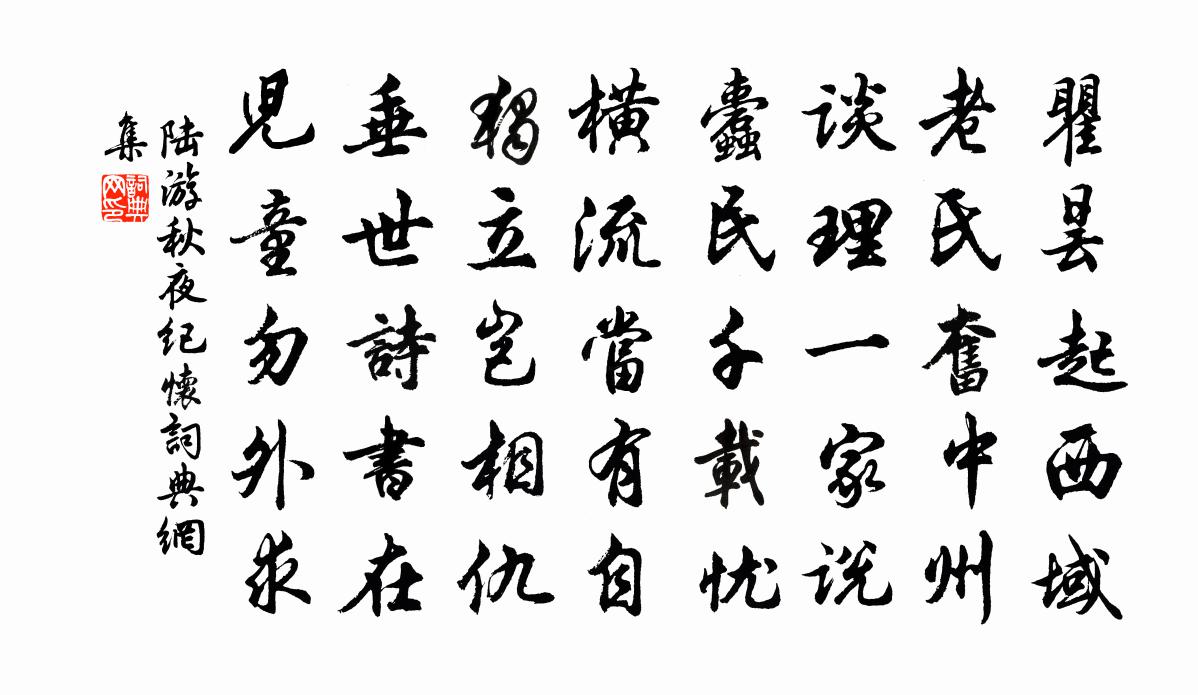 瞿曇起西域
老氏奮中州
談理一家說
蠹民千載憂
橫流當有自
獨立豈相仇
垂世詩書在
兒童勿外求
陸游秋夜紀懷詞典網
集
詞典網印